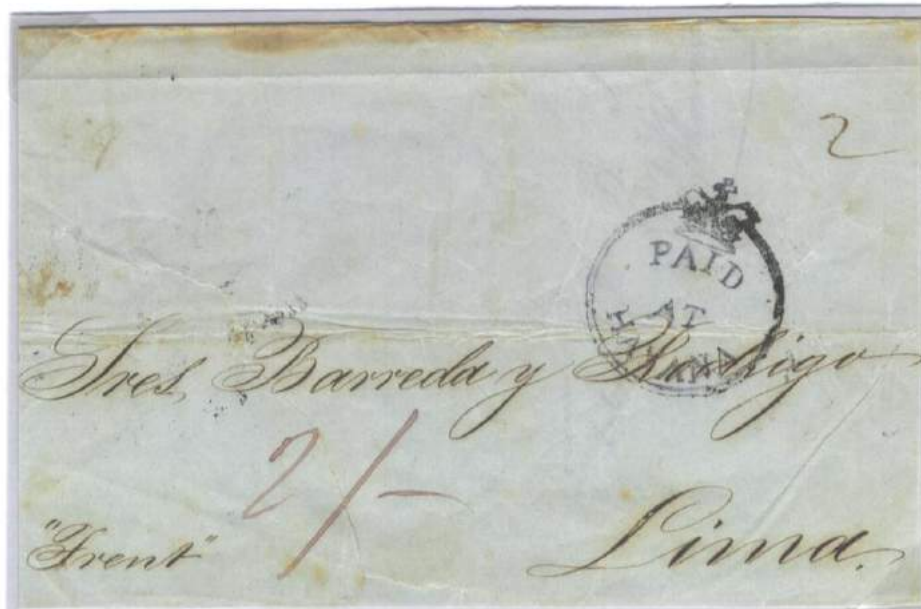 2
PAID
AT
HAVANA
Sres Barreda y
2/-
"Trent"
Lima.